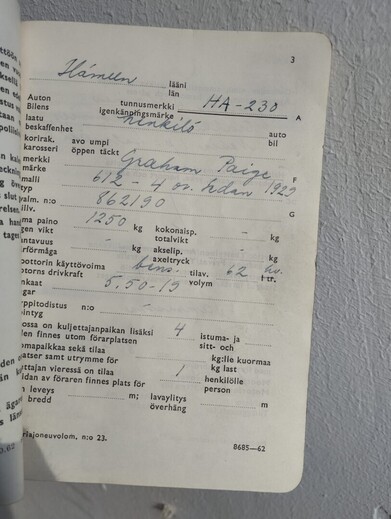 3
Hämeen lääni
län
Auton tunnusmerkki HA-230
Bilens igenkänningsmärke A
laatu henkilö auto
beskaffenhet bil
korirak. avo umpi
karosseri öppen täckt
merkki Graham Paige F
märke
malli 612 - 4 ov. sedan 1929
typ
valm. n:o 862190 G
tilliv.
oma paino 1250 kg kokonaisp. - kg
gen vikt totalvikt
antavuus - kg akselip. - kg
ärförmåga axeltryck
oottorin käyttövoima bens. tilav. 62 hv.
otorns drivkraft volym l tr.
nkaat 5.50-19
ngar
rppitodistus n:o -
pintyg
ossa on kuljettajanpaikan lisäksi 4 istuma- ja
en finnes utom förarplatsen sitt- och
omapaikkaa sekä tilaa kg:lle kuormaa
platser samt utrymme för kg last
ttajan vieressä on tilaa 1 henkilölle
idan av föraren finnes plats för person
n leveys m; lavaylitys m
bredd överhäng
risjoneuvolom, n:o 23.
8685—62